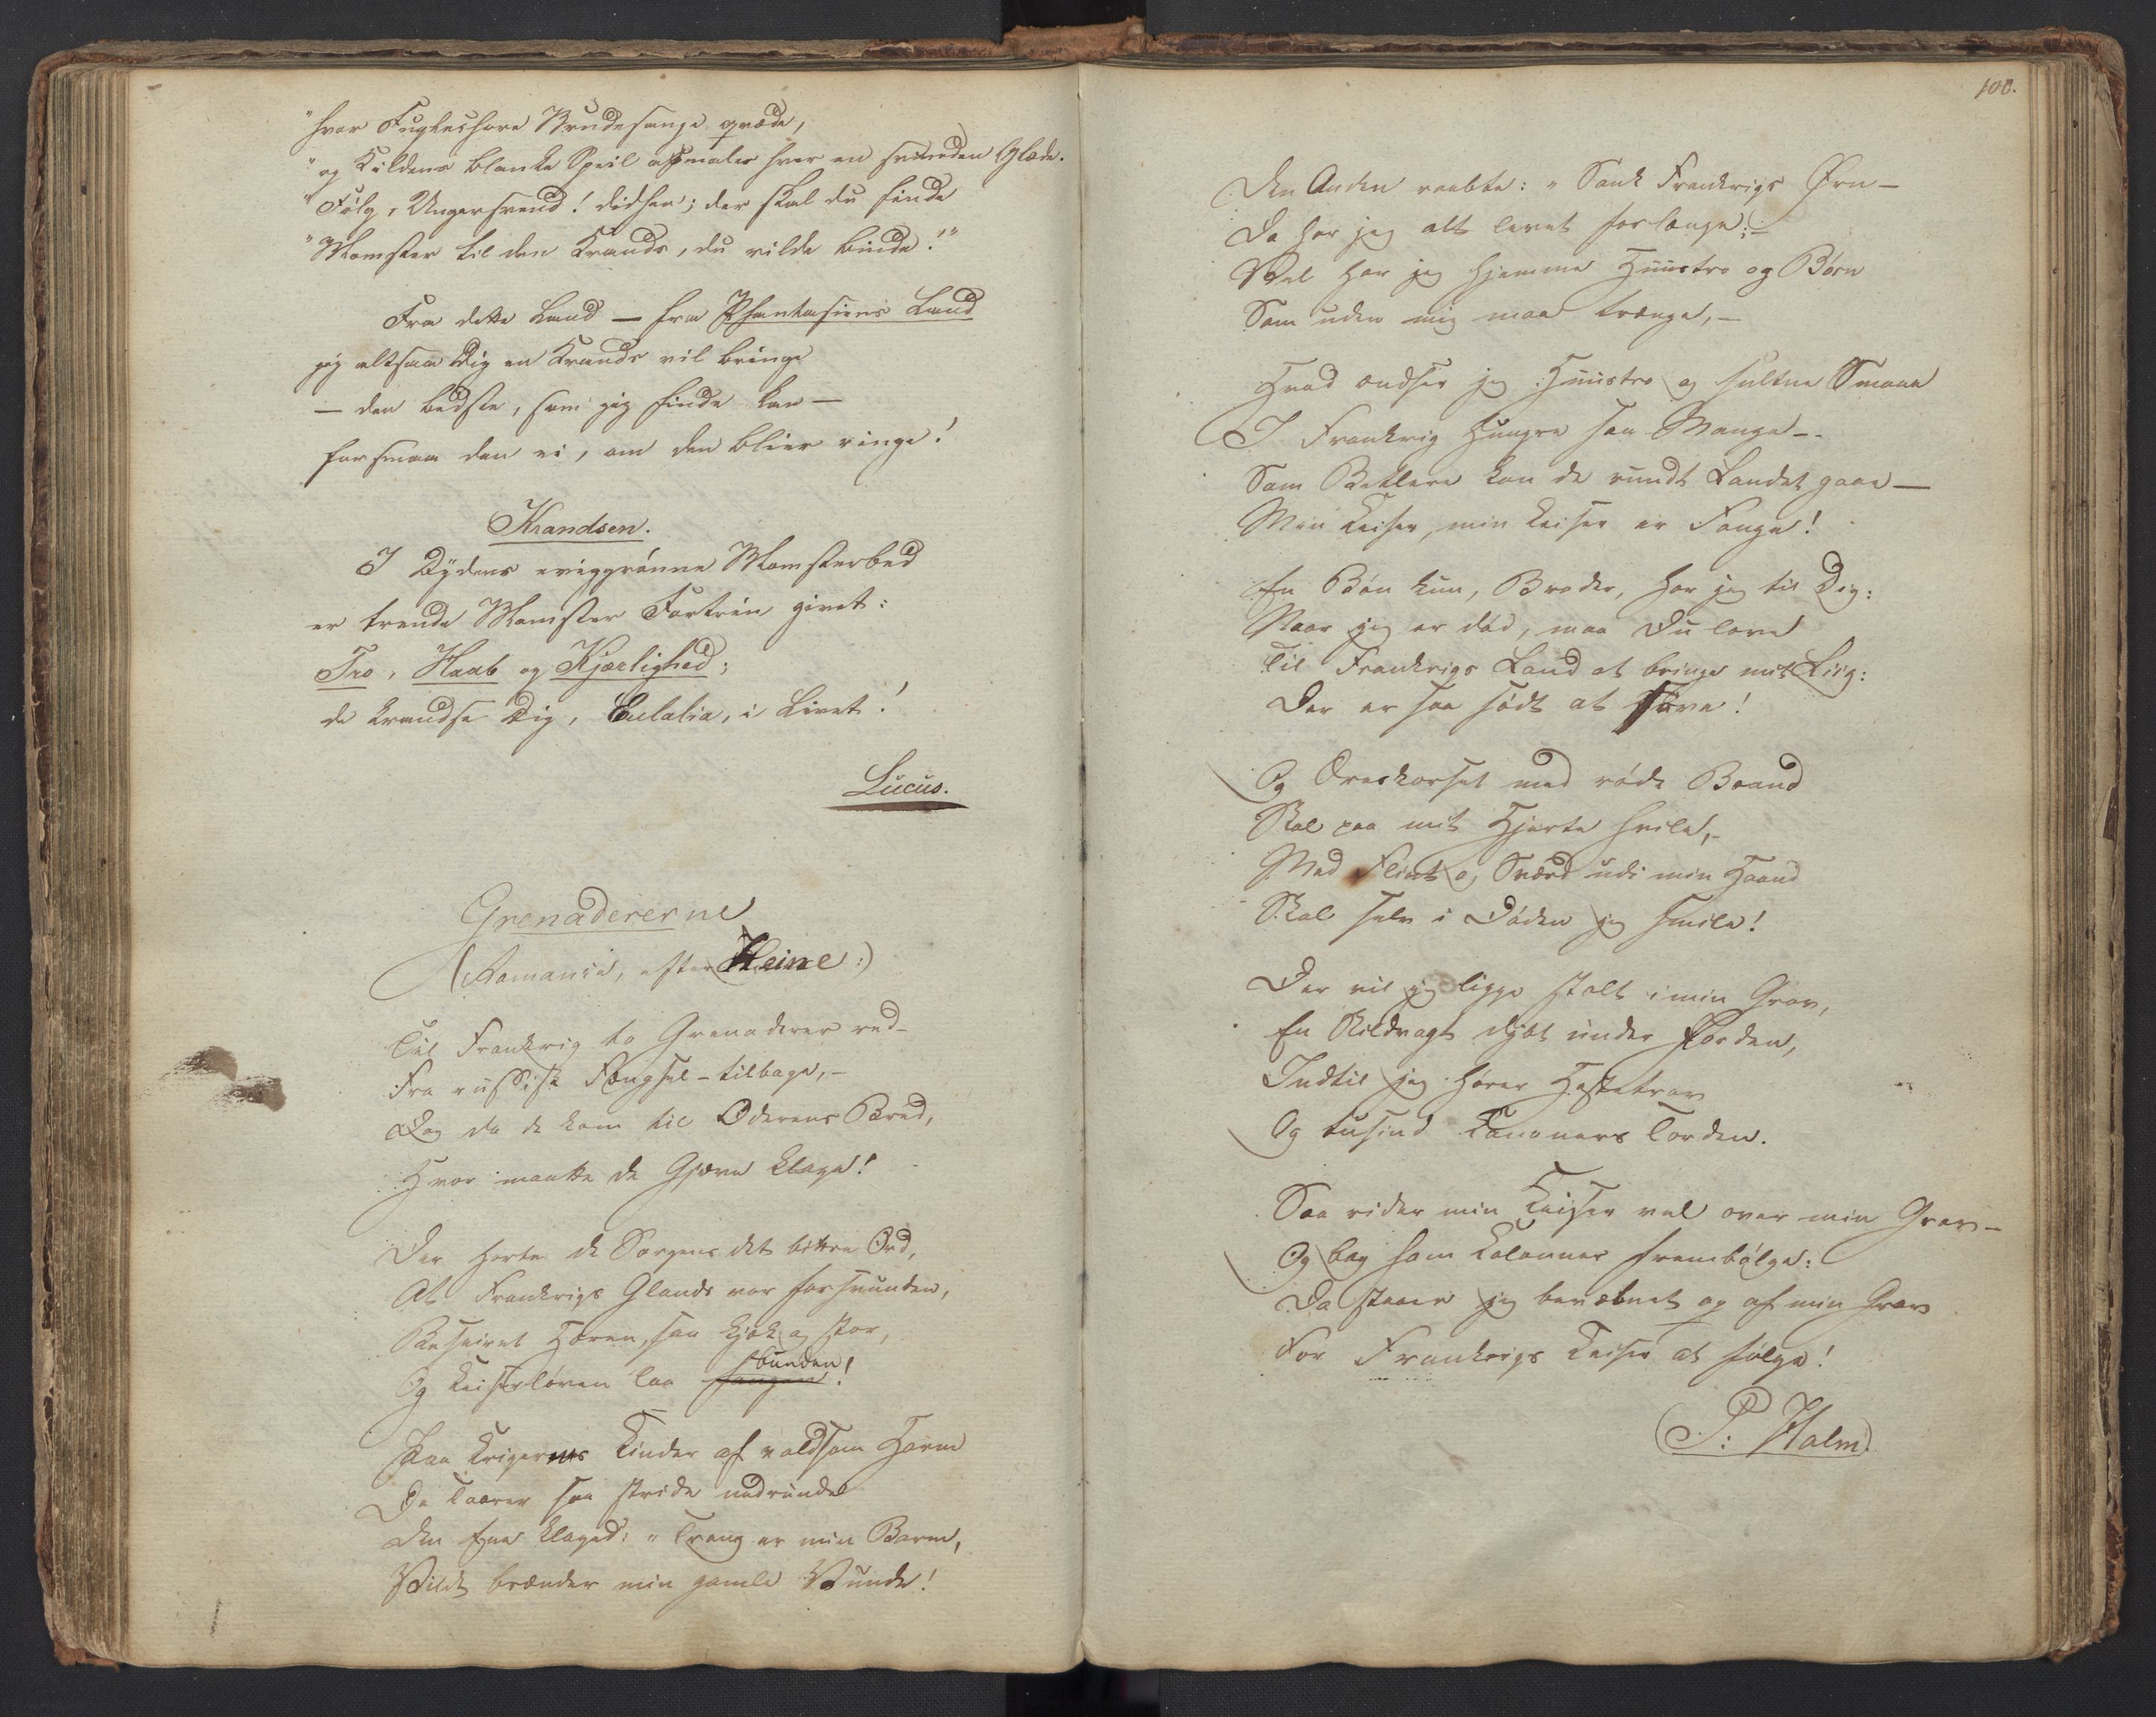 "hvor Fugleshare Brudesange qvæde,
"og Kildens blanke Speil afmaler hver en svunden Glæde.
"Følg, Ungersvend! didhen; der skal du finde
"Blomster til den Krands, du vilde binde!"
Fra dette Land — fra Phantasiens Land
jeg altsaa Dig en Krands vil bringe
— den bedste, som jeg finde kan —
forsmaa den ei, om den blier ringe!
Krandsen.
I Dydens eviggrønne Blomsterbed
er trende Blomster Fortrin givet:
Tro, Haab og Kjærlighed;
de krandse Dig, Eulalia, i Livet!
Lucus.
Grenadererne
(Romance, efter Heine:)
Til Frankrig to Grenaderer red—
Fra russisk Fængsel — tilbage,—
Dog da de kom til Oderens Bred,
Hvor maatte de Gjæve klage!
Der hørte de Sorgens det bittre Ord,
At Frankrigs Glands var forsvunden,
Beseiret Hæren, saa kjæk og stor,
Og Keiserløven laa fangen! bunden!
Paa Krigernes Kinder af voldsom Harm
De Taarer saa stride nedrunde
Den Ene klaged: "Trang er min Barm,
Vildt brænder min gamle Vunde!
100.
Den Anden raabte: "Sank Frankrigs Ørn—
Da har jeg alt levet forlænge;—
Vel har jeg hjemme Huustro og Børn
Som uden mig maa trænge,—
Hvad ændser jeg Huustro og sultne Smaae
I Frankrig hungre saa Mange—
Som Betlere kan de rundt Landet gaae—
Min Keiser, min Keiser er Fange!
En Bøn kun, Broder, har jeg til Dig:
Naar jeg er død, maa Du love
Til Frankrigs Land at bringe mit Liig:
Der er saa sødt at sove!
Og Æreskorset med røde Baand
Skal paa mit Hjerte hvile,—
Med Flint og Sværd udi min Haand
Skal selv i Døden jeg smile!
Der vil jeg ligge stolt i min Grav,
En Skildvagt dybt under Jorden,
Indtil jeg hører Hestetrav
Og tusind Kanoners Torden.
Saa rider min Keiser vel over min Grav—
Og bag ham Kolonner frembølge:
Da staaer jeg bevæbnet op af min Grav
For Frankrigs Keiser at følge!
(P: Holm.)